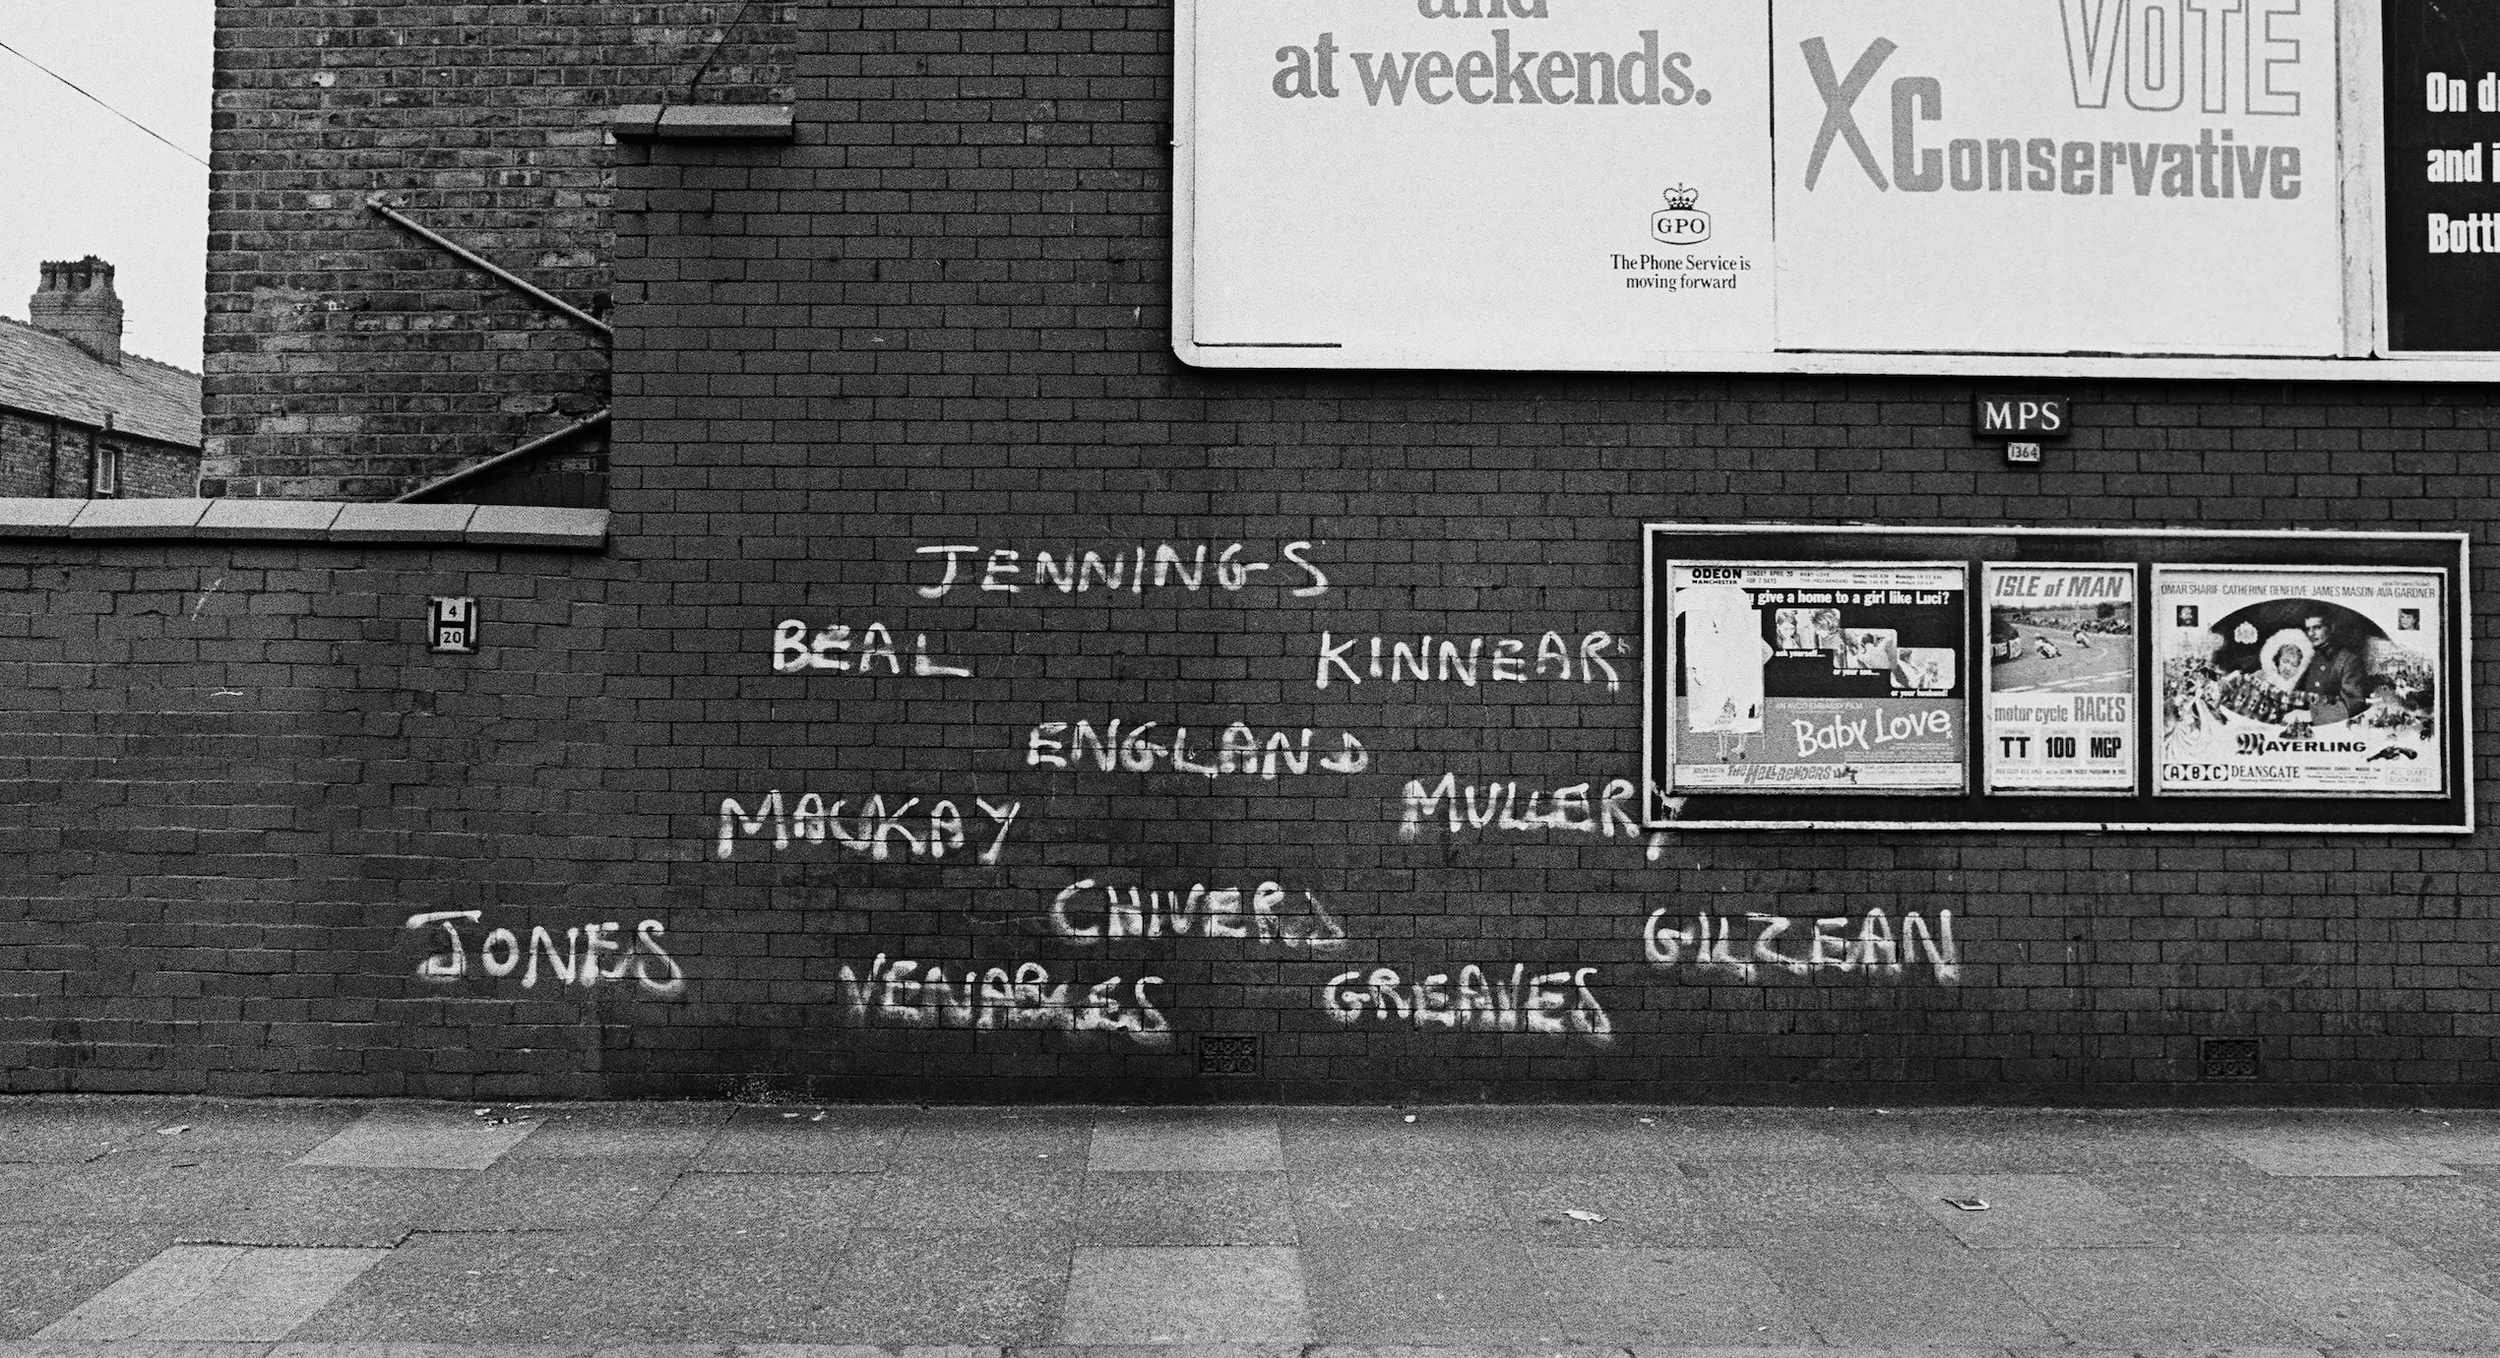 and
at weekends.
GPO
The Phone Service is
moving forward
VOTE
X Conservative
On
and
MPS
1364
H
4
20
JENNINGS
BEAL
KINNEAR
ENGLAND
MACKAY
MULLERY
CHIVERS
JONES
GILZEAN
VENABLES
GREAVES
ODEON
MANCHESTER
SUNDAY APRIL 20
FOR 7 DAYS
give a home to a girl like Luci?
ask yourself....
or your son....
or your husband!
AN AVCO EMBASSY FILM
Baby Love
THE HELLBENDERS
ISLE of MAN
motor cycle RACES
TT 100 MGP
OMAR SHARIF CATHERINE DENEUVE JAMES MASON AVA GARDNER
MAYERLING
ABC DEANSGATE